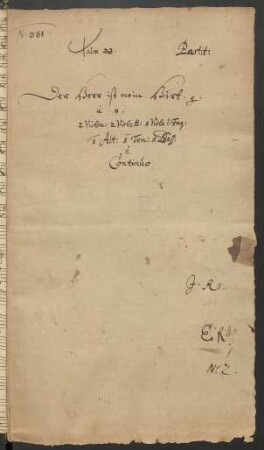 Psalm 23.
Partit:
Der Herr ist mein Hirt.
à
2 Violin: 2 Violett: 1 Viola 1 Fag:
1 Alt: 1 Ten: 1 Bass:
è
Continuo
J. R.
E R
No: 2.